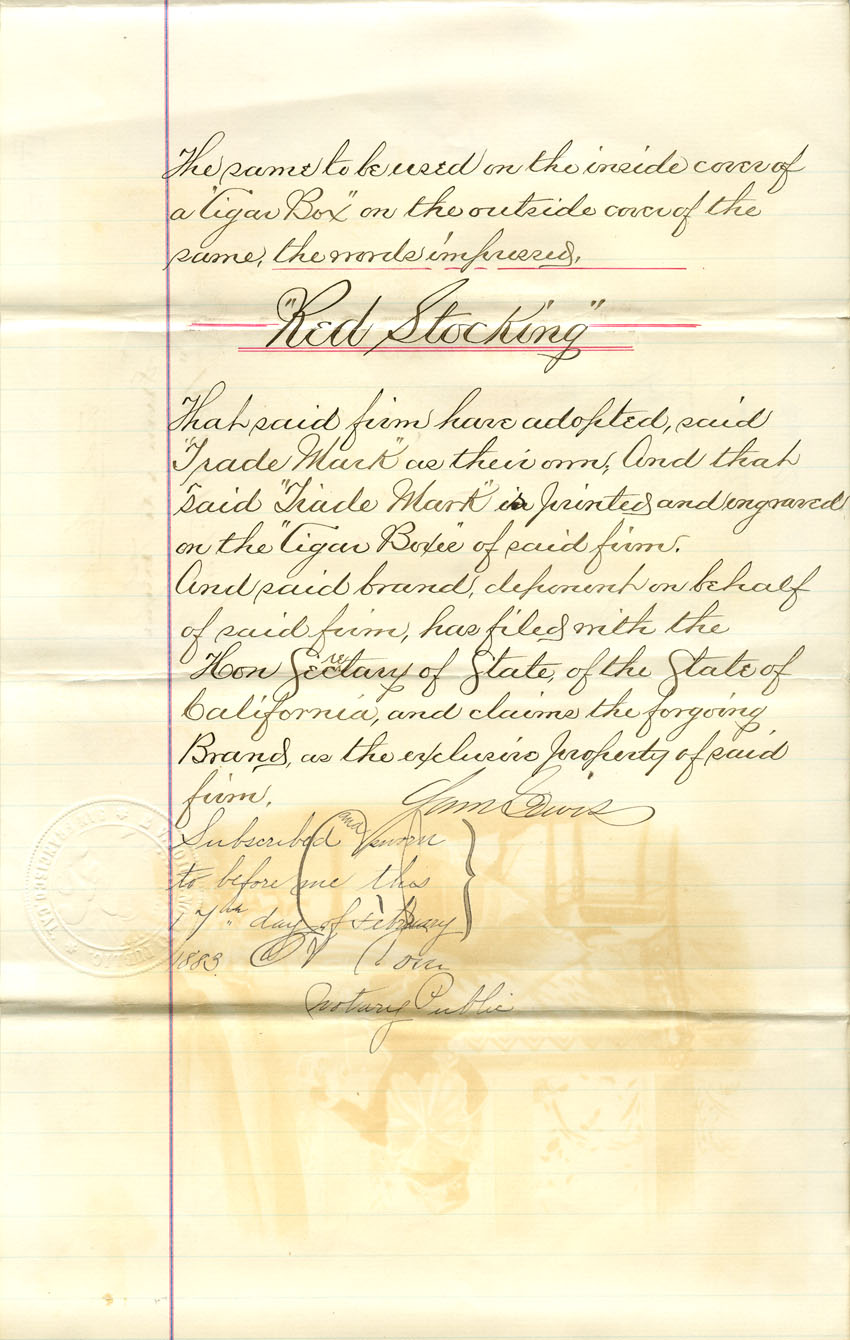 The same to be used on the inside cover of
a "Cigar Box" on the outside cover of the
same, the words impressed,
"Red Stocking"
That said firm have adopted, said
"Trade Mark" as their own, And that
said "Trade Mark" is printed and engraved
on the "Cigar Boxes" of said firm.
And said brand, deponent on behalf
of said firm, has filed with the
Hon Secretary of State, of the State of
California, and claims the forgoing
Brand, as the exclusive property of said
firm.
Sam Lewis
Subscribed and sworn
to before me this
17th day of February
1883.
Notary Public
NOTARY PUBLIC